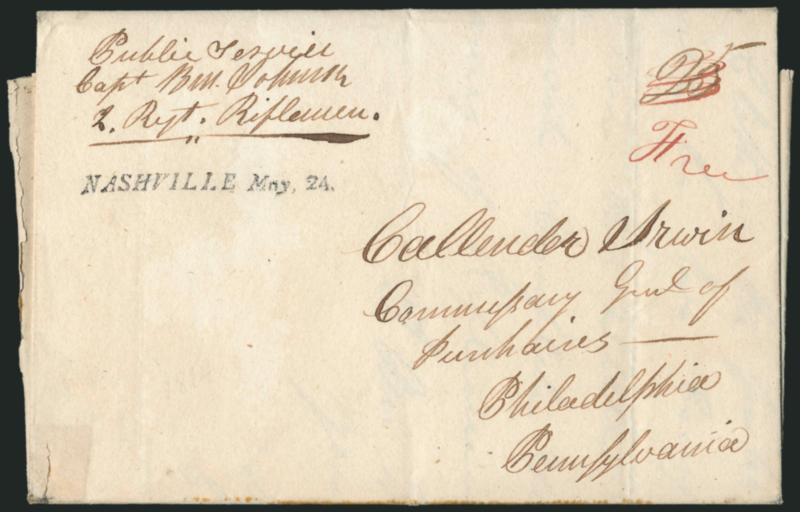 Public Service
Capt Bn. Johnson
2. Regt. Riflemen.
Free
NASHVILLE May, 24.
Callender Irwin
Commissary Genl of
Purchaises —
Philadelphia
Pennsylvania